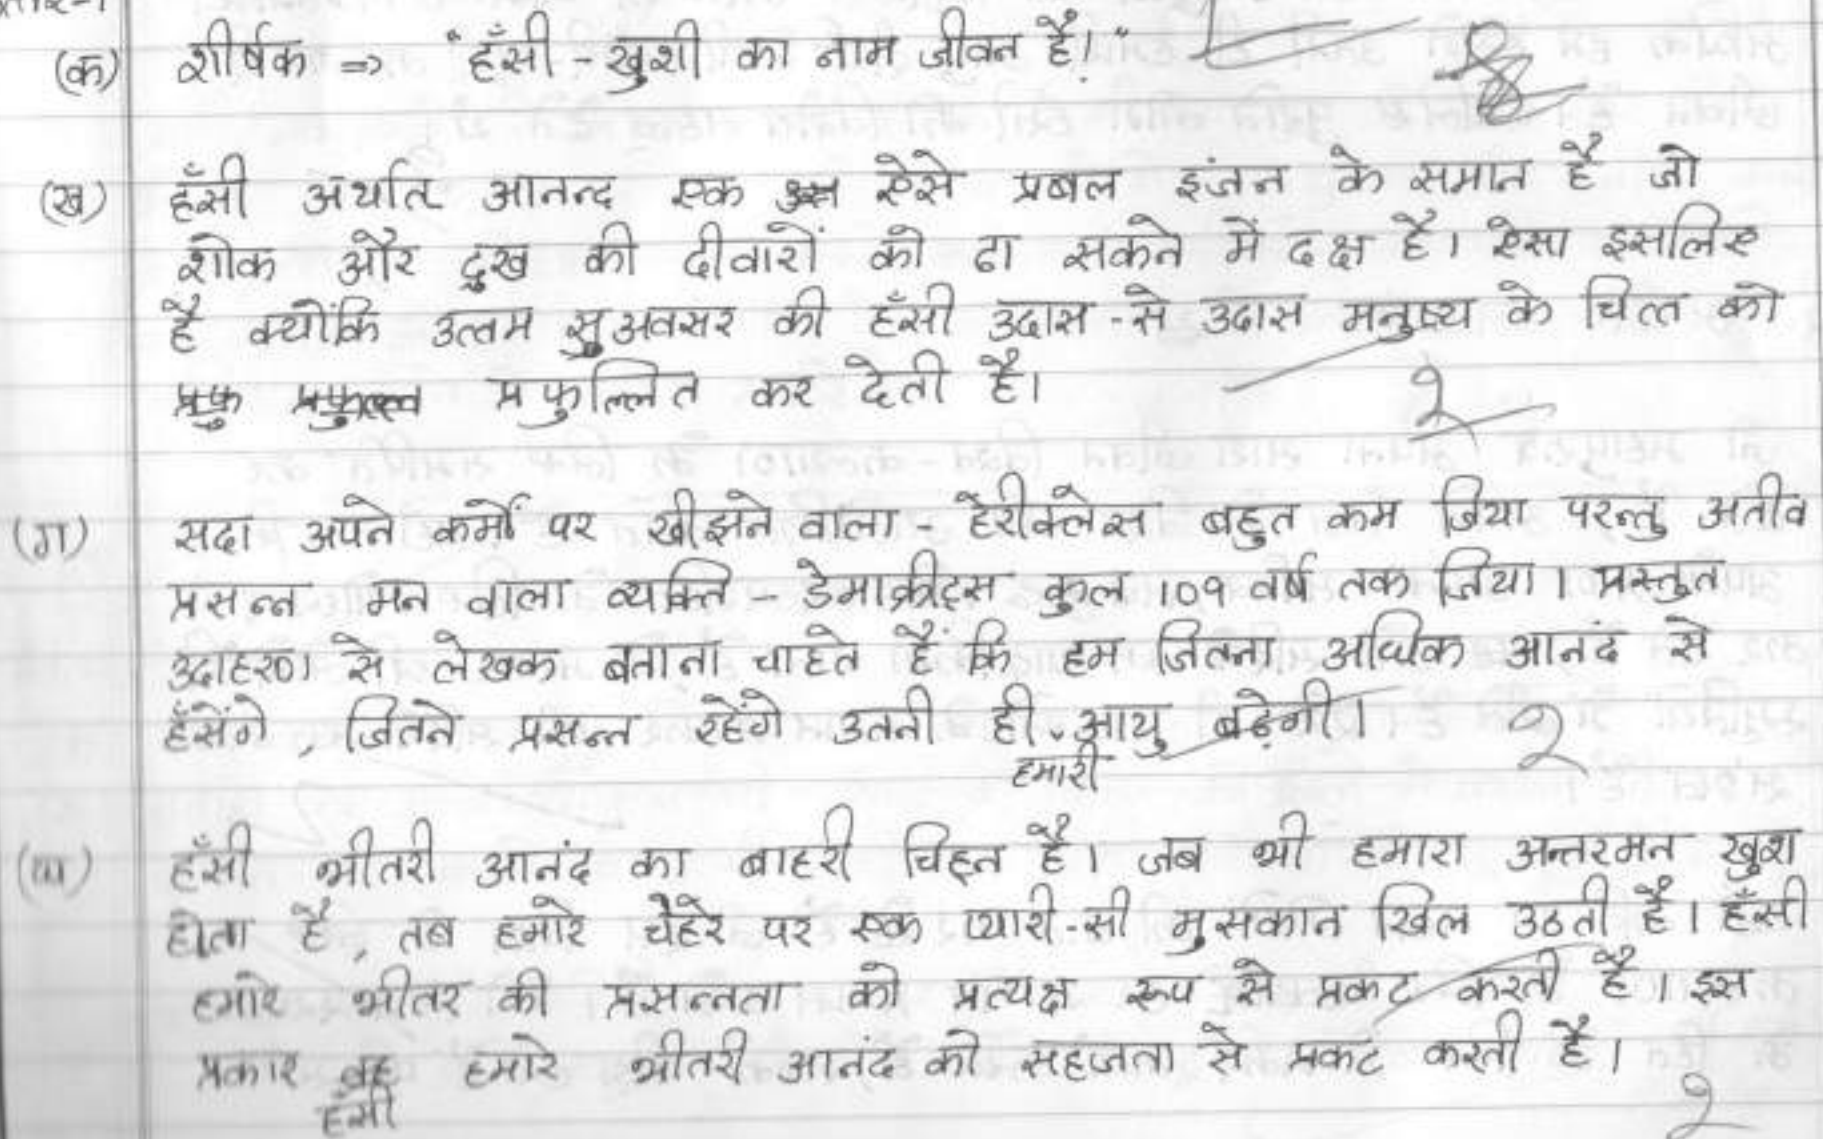 (क) शीर्षक => "हँसी - खुशी का नाम जीवन है।"
(ख) हँसी अर्थात आनन्द एक ऐसे प्रबल इंजन के समान है जो
शोक और दुख की दीवारों को ढा सकने में दक्ष है। ऐसा इसलिए
है क्योंकि उत्तम सुअवसर की हँसी उदास - से उदास मनुष्य के चित्त को
प्रफु प्रफुल्ल प्रफुल्लित कर देती है।
२
(ग) सदा अपने कर्मों पर खीझने वाला - हेरीक्लेस बहुत कम जिया परन्तु अतीव
प्रसन्न मन वाला व्यक्ति - डेमाक्रीट्स कुल 109 वर्ष तक जिया। प्रस्तुत
उदाहरण से लेखक बताना चाहते हैं कि हम जितना अधिक आनंद से
हँसेंगे, जितने प्रसन्न रहेंगे उतनी ही हमारी आयु बढ़ेगी।
२
(घ) हँसी भीतरी आनंद का बाहरी चिह्न है। जब भी हमारा अन्तरमन खुश
होता है, तब हमारे चेहरे पर एक प्यारी-सी मुसकान खिल उठती है। हँसी
हमारे भीतर की प्रसन्नता को प्रत्यक्ष रूप से प्रकट करती है। इस
प्रकार वह हँसी हमारे भीतरी आनंद को सहजता से प्रकट करती है।
२